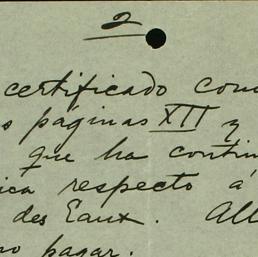 2
certificado con
s páginas XII y
que ha contin
ica respecto á
des Eaux. All
no pagar.